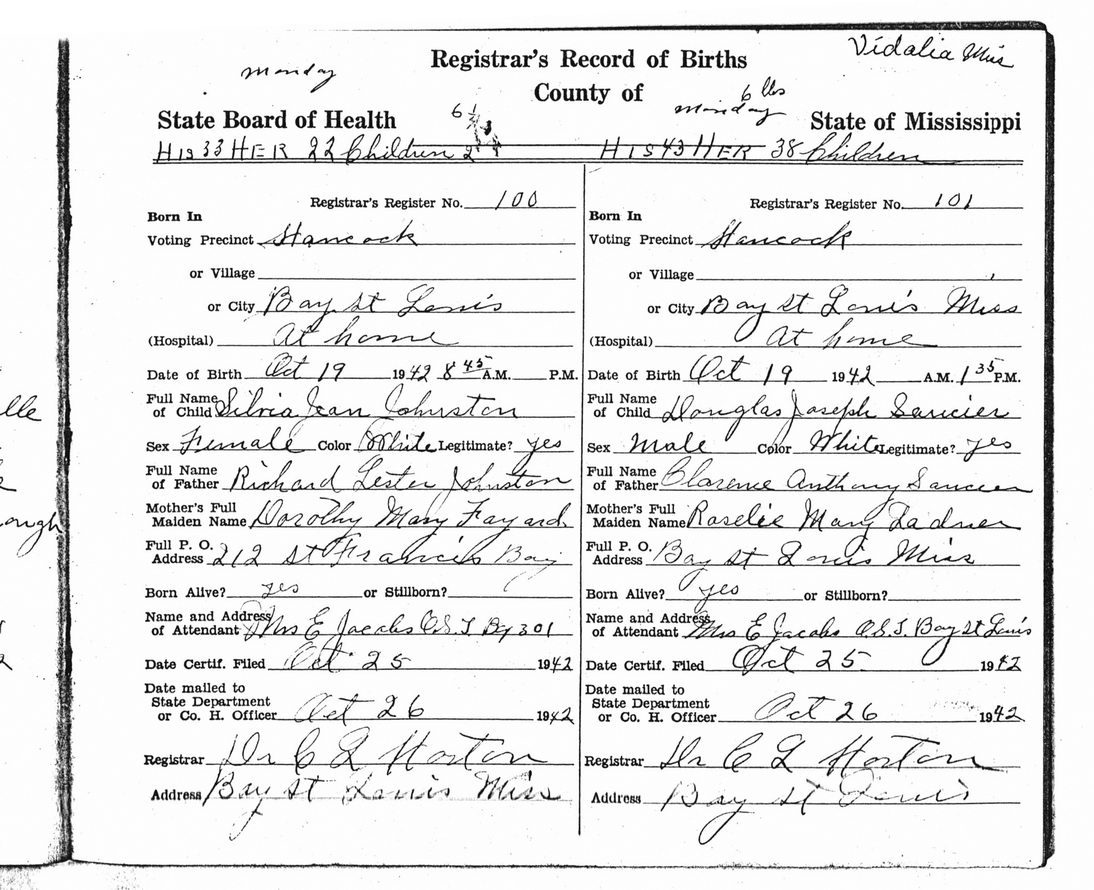 Vidalia Mis
Registrar's Record of Births
monday
County of
6 lbs
monday
State Board of Health
State of Mississippi
HIS 33 HER 22 Children 2
HIS 43 HER 38 Children
Registrar's Register No. 100
Born In
Voting Precinct Hancock
or Village
or City Bay St Louis
(Hospital) At home
Date of Birth Oct 19 1942 8 45 A.M. P.M.
Full Name
of Child Silvia Jean Johnston
Sex Female Color White Legitimate? yes
Full Name
of Father Richard Lester Johnston
Mother's Full
Maiden Name Dorothy Mary Fayard
Full P. O.
Address 212 St Francis Bay
Born Alive? yes or Stillborn?
Name and Address
of Attendant Mrs E Jacobs O.S.T. By 301
Date Certif. Filed Oct 25 1942
Date mailed to
State Department
or Co. H. Officer Oct 26 1942
Registrar Dr C L Horton
Address Bay St Louis Miss
Registrar's Register No. 101
Born In
Voting Precinct Hancock
or Village
or City Bay St Louis Miss
(Hospital) At home
Date of Birth Oct 19 1942 A.M. 1 35 P.M.
Full Name
of Child Douglas Joseph Saucier
Sex Male Color White Legitimate? yes
Full Name
of Father Clarence Anthony Saucier
Mother's Full
Maiden Name Roselie Mary Ladner
Full P. O.
Address Bay St Louis Miss
Born Alive? yes or Stillborn?
Name and Address
of Attendant Mrs E Jacobs O.S.T. Bay St Louis
Date Certif. Filed Oct 25 1942
Date mailed to
State Department
or Co. H. Officer Oct 26 1942
Registrar Dr C L Horton
Address Bay St Louis